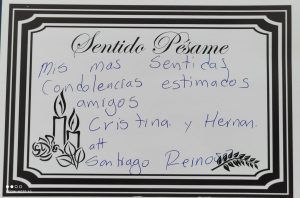 Sentido Pésame
Mis mas Sentidas
Condolencias estimados
amigos
Cristina y Hernan.
att
Santiago Reinoso